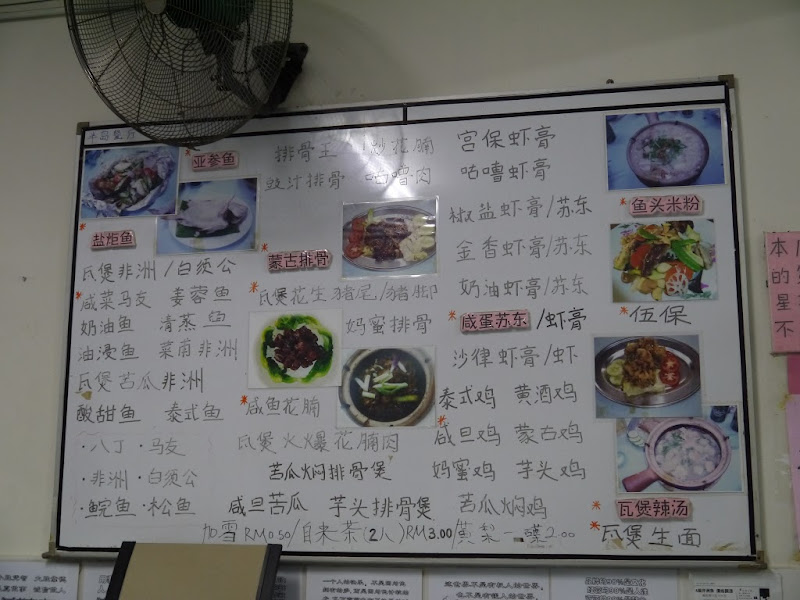 亚参鱼
盐炬鱼
瓦煲非洲/白须公
咸菜马友 姜蓉鱼
奶油鱼 清蒸鱼
油浸鱼 菜甫非洲
瓦煲苦瓜非洲
酸甜鱼 泰式鱼
·八丁·马友
·非洲·白须公
·鲩鱼·松鱼
排骨王 /炒花腩
豉汁排骨 咕噜肉
蒙古排骨
瓦煲花生猪尾/猪脚
妈蜜排骨
咸鱼花腩
瓦煲火爆花腩肉
苦瓜焖排骨煲
咸旦苦瓜 芋头排骨煲
宫保虾膏
咕噜虾膏
椒盐虾膏/苏东
金香虾膏/苏东
奶油虾膏/苏东
咸蛋苏东/虾膏
沙律虾膏/虾
泰式鸡 黄酒鸡
咸旦鸡 蒙古鸡
妈蜜鸡 芋头鸡
苦瓜焖鸡
鱼头米粉
伍保
瓦煲辣汤
瓦煲生面
加雪RM0.50/自来茶(2人)RM3.00 黄梨一碟2.00
本
的
星
不